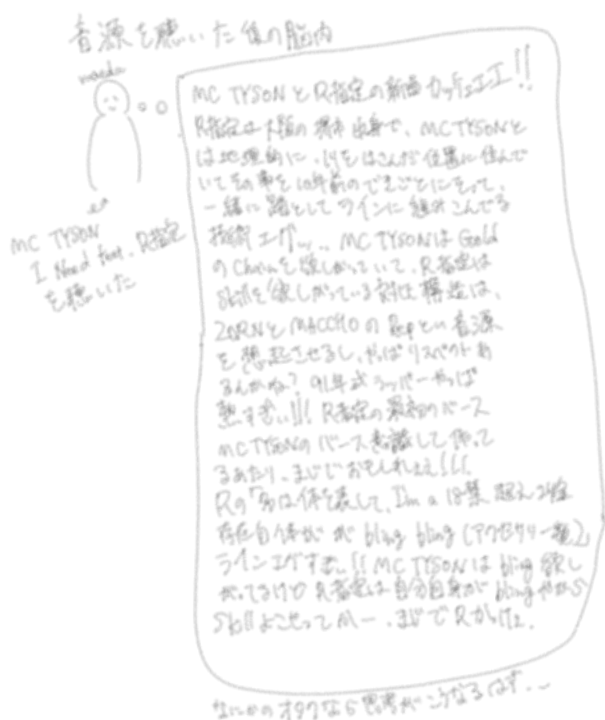 音源を聴いた後の脳内
maeda
MC TYSON
I Need feat. R指定
を聴いた
MC TYSONとR指定の新曲カッチェエエ!!
R指定は大阪の堺市出身で、MC TYSONと
は地理的に、川をはさんだ位置に住んで
いてその事を10年前のできごとにそって、
一緒に韻としてラインに組みこんでる
技術エグい... MC TYSONはGold
のChainを欲しがっていて、R指定は
Skillを欲しがっている対比構造は、
ZORNとMACCHOのRepという音源
を想起させるし、やっぱリスペクトあ
るんかね? 91年式ラッパーやっぱ
熱すぎい!!! R指定の最初のバース
MC TYSONのバース意識して作って
るあたり、まじでおもしれえ!!!
Rの「名は体を表して、I'm a 18禁 超え
存在自体が が bling bling (アクセサリー
ラインエグすぎい!! MC TYSONは bling 欲し
がってるけど R指定は自分自身が blingやから
Skillよこせって まじでRかっけえ。
なにかのオタクなら思考がこうなるはず...